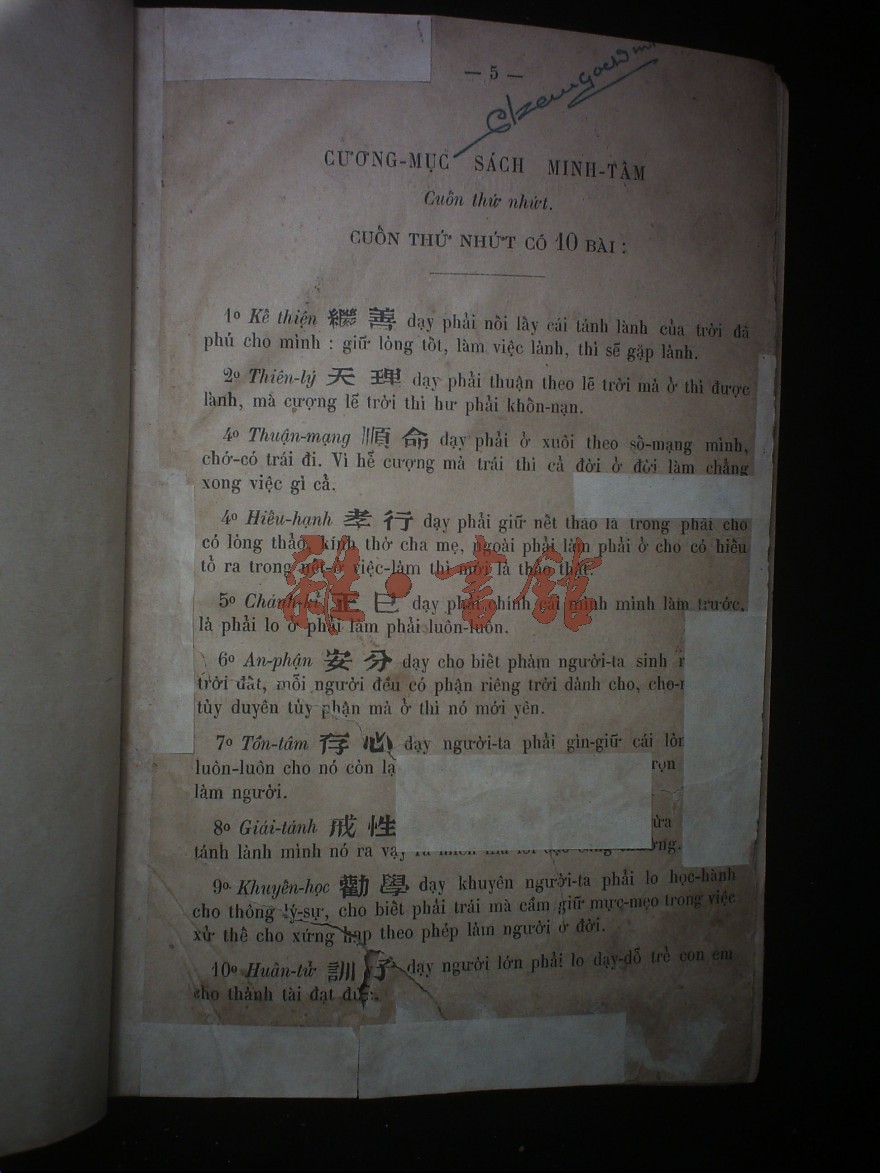 — 5 —
CƯƠNG-MỤC SÁCH MINH-TÂM
Cuồn thứ nhứt.
CUỒN THỨ NHỨT CÓ 10 BÀI :
1º Kê thiện 繼 善 dạy phải nồi lầy cái tánh lành của trời đã
phú cho mình : giữ lòng tồt, làm việc lành, thì sẽ gặp lành.
2º Thiên-lý 天 理 dạy phải thuận theo lẽ trời mà ở thì được
lành, mà cượng lẽ trời thì hư phải khồn-nạn.
4º Thuận-mạng 順 命 dạy phải ở xuôi theo sồ-mạng mình,
chớ-có trái đi. Vì hễ cượng mà trái thì cả đời ở đời làm chẳng
xong việc gì cả.
4º Hiêu-hạnh 孝 行 dạy phải giữ nết thảo là trong phải cho
có lòng thảo, kính thờ cha mẹ, ngoài phải làm phải ở cho có hiêu
tỏ ra trong nết-ở việc-làm thì mới là thảo thật.
雜·書館
5º Chánh-kỉ 正 已 dạy phải chính cái mình mình làm trước,
là phải lo ở phải làm phải luôn-luôn.
6º An-phận 安 分 dạy cho biết phàm người-ta sinh
trời đất, mỗi người đều có phận riêng trời dành cho,
tùy duyên tùy phận mà ở thì nó mới yên.
7º Tồn-tâm 存 心 dạy người-ta phải gìn-giữ cái
luôn-luôn cho nó còn
làm người.
8º Giái-tánh 戒 性
tánh lành mình nó ra
9º Khuyên-học 勸 學 dạy khuyên người-ta phải lo học-hành
cho thông lý-sự, cho biết phải trái mà cầm giữ mực-mẹo trong việc
xử thề cho xứng hạp theo phép làm người ở đời.
10º Huân-tử 訓 子 dạy người lớn phải lo dạy-dỗ trẻ con em
cho thành tài đạt